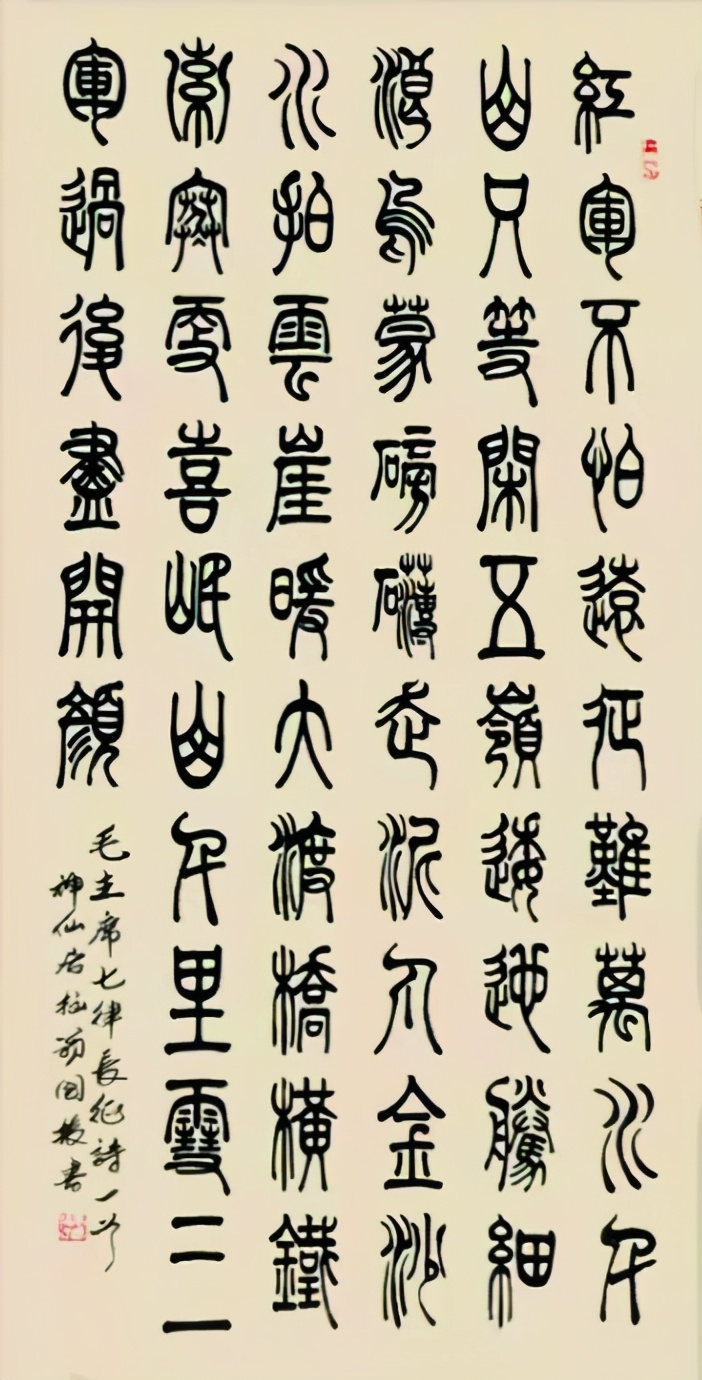 紅軍不怕遠征難萬水千
山只等閑五嶺逶迤騰細
浪烏蒙磅礴走泥丸金沙
水拍雲崖暖大渡橋橫鐵
索寒更喜岷山千里雪三
軍過後盡開顏
毛主席七律長征詩一首
神仙居翁国書